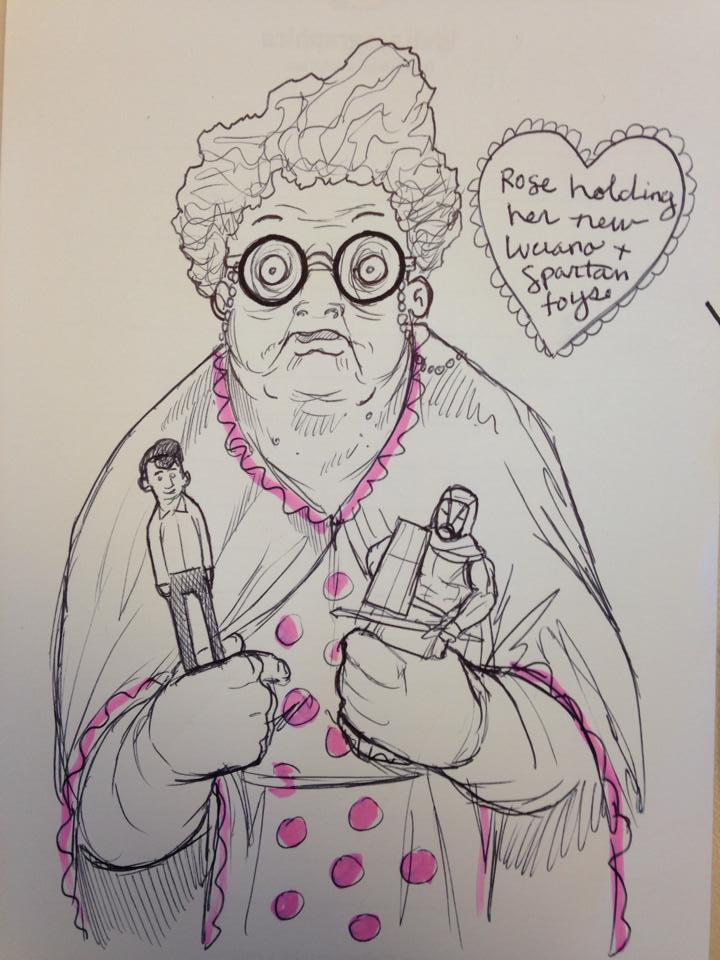 Rose holding
her new
Luciano +
Spartan
toys.